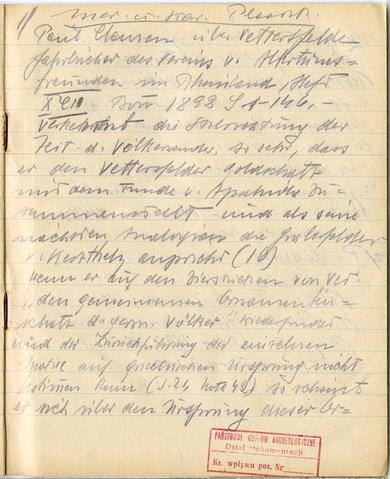 1)
Paul Clemen über Vettersfelde
Jahrbücher des Vereins v. Altertums-
freunden im Rheinland, Heft
XCII Bonn 1892 S 1-146.-
verkennt die Stellung der
Zeit d. Völkerwander. so sehr, dass
er den Vettersfelder Goldschatz
mit dem Funde v. Apahida zu-
sammenstellt und als seine
nächsten Analogien die Gräberfelder
v. Keszthely anspricht (10)
wenn er auf den Tierstücken von Vet.
"den gemeinsamen Ornamenten-
schatz d. germ. Völker" wiederfindet
und der Zurückführung der einzelnen
Motive auf griechischen Ursprung nicht
beistimmen kann (S. 24 Nota 42) so scheint
er sich über den Ursprung dieser Or-
PAŃSTWOWE MUZEUM ARCHEOLOGICZNE
Dział Dokumentacji
Ks. wpływu poz. Nr